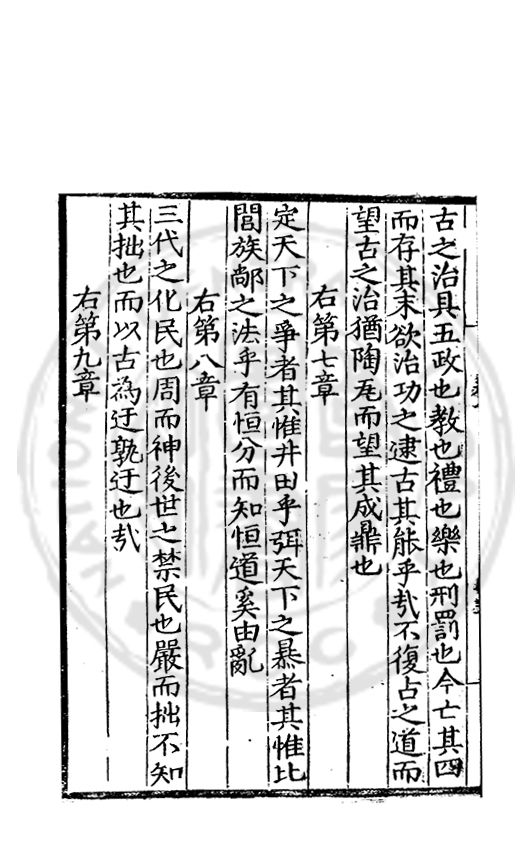 古之治具五政也教也禮也樂也刑罰也今亡其四
而存其末欲治功之逮古其能乎㢤不復占之道而
望古之治猶陶瓦而望其成鼎也
右第七章
定天下之爭者其惟井田乎弭天下之暴者其惟比
閭族鄰之法乎有恒分而知恒道奚由亂
右第八章
三代之化民也周而神後世之禁民也嚴而拙不知
其拙也而以古為迂孰迂也㢤
右第九章